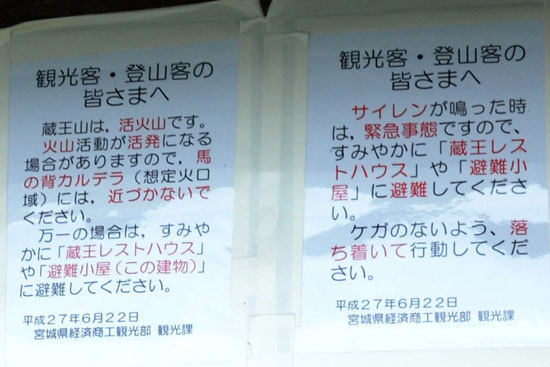 観光客・登山客の
皆さまへ
蔵王山は，活火山です。
火山活動が活発になる
場合がありますので，馬
の背カルデラ（想定火口
域）には，近づかないで
ください。
万一の場合は，すみや
かに「蔵王レストハウス」
や「避難小屋（この建物）」
に避難してください。
平成２７年６月２２日
宮城県経済商工観光部 観光課
観光客・登山客の
皆さまへ
サイレンが鳴った時
は，緊急事態ですので，
すみやかに「蔵王レス
トハウス」や「避難小
屋」に避難してくださ
い。
ケガのないよう，落
ち着いて行動してくだ
さい。
平成２７年６月２２日
宮城県経済商工観光部 観光課